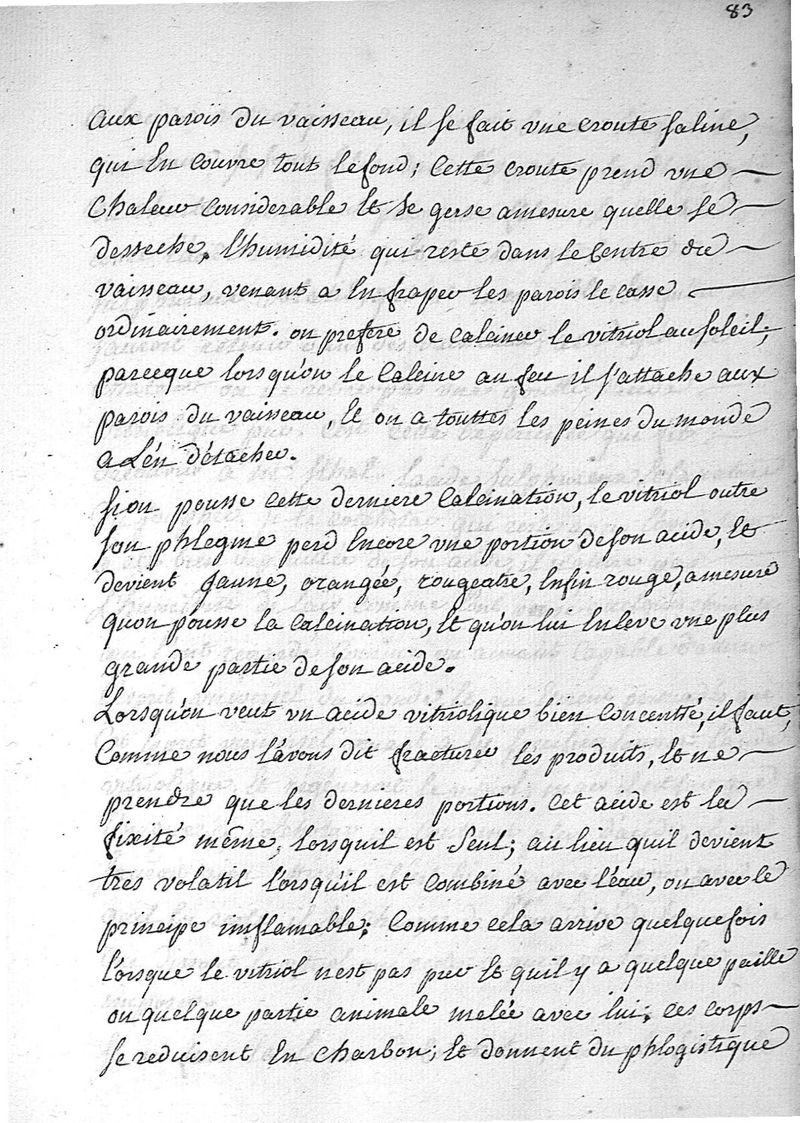 83
aux parois du vaisseau, il se fait vne croute saline,
qui En couvre tout le fond; Cette croute prend vne
Chaleur Considerable Et se gerse amesure quelle se
desseche, l'humidité qui reste dans le Centre du
vaisseau, venant a En fraper les parois le casse
ordinairement. on prefere de Calciner le vitriol au soleil,
parceque lorsqu'on le Calcine au feu il s'attache aux
parois du vaisseau, Et on a touttes les peines du monde
a L'én détacher.
sion pousse cette derniere Calcination, le vitriol outre
son phlegme perd Encore vne portion de son acide, Et
devient jaune, orangée, rougeatre, Enfin rouge, amesure
quon pousse la Calcination, Et qu'on lui Enleve vne plus
grande partie de son acide.
Lorsqu'on veut vn acide vitriolique bien Concentré, il faut,
Comme nous l'avons dit fracturer les produits, Et ne
prendre que les dernieres portions. Cet acide est la
fixité même, lorsquil est Seul; au lieu quil devient
tres volatil lorsqu'il est Combiné avec l'eau, ou avec le
principe imflamable; Comme cela arrive quelquefois
lorsque le vitriol nest pas pur Et quil y a quelque paille
ou quelque partie animale melée avec lui; Ces corps
se reduisent En charbon; Et donnent du phlogistique